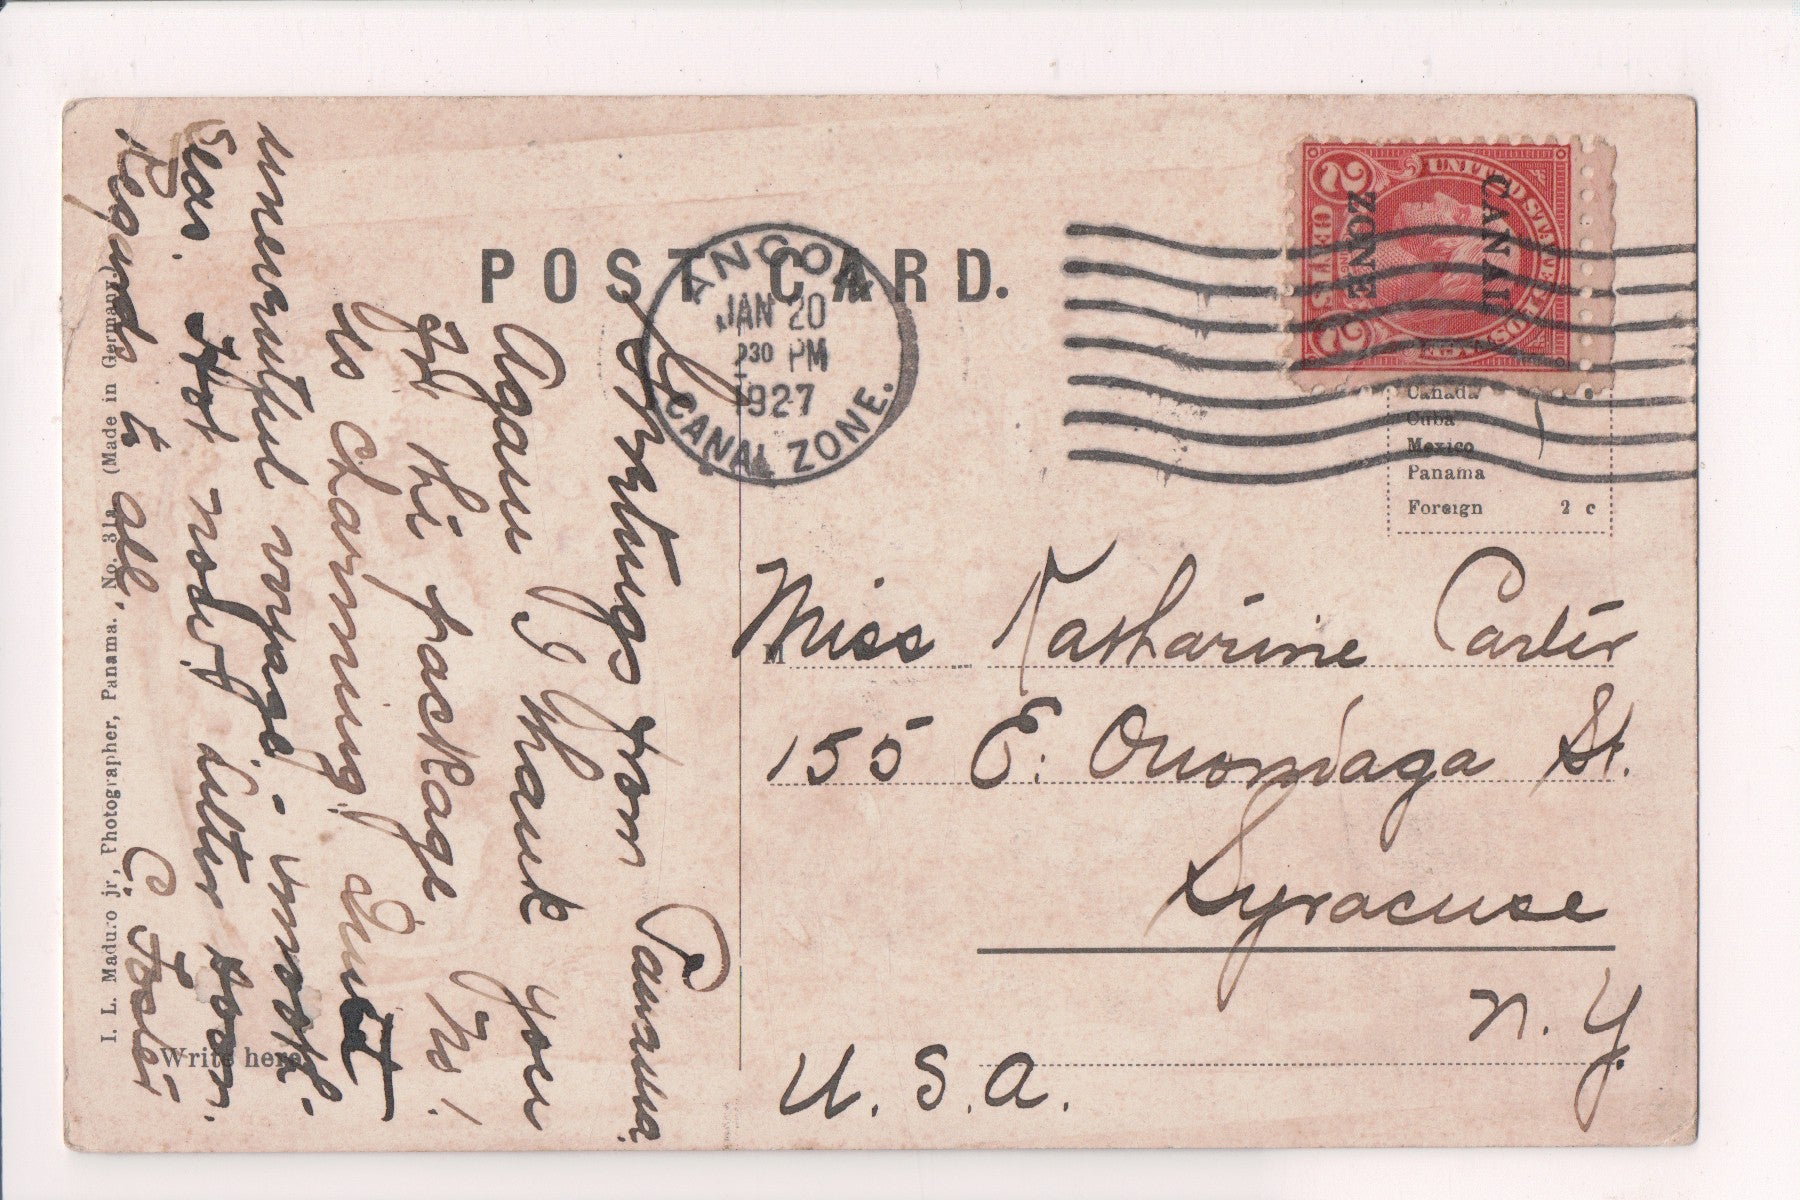 POST CARD.
ANCON
JAN 20
230 PM
1927
CANAL ZONE.
UNITED STATES
CANAL
ZONE
2
2
Canada
Cuba
Mexico
Panama
Foreign 2 c
Greetings from Panama.
Again I thank you
for the package No.
Its charming! Quiet
uneventful voyage - smooth
sea. Hot now. Letter soon.
Regards to all
C. Foster
Miss Katharine Carter
M
155 E. Onondaga St.
Syracuse
N. Y.
U. S. A.
I. L. Maduro jr, Photographer, Panama., No. 31a (Made in Germany.)
Write here